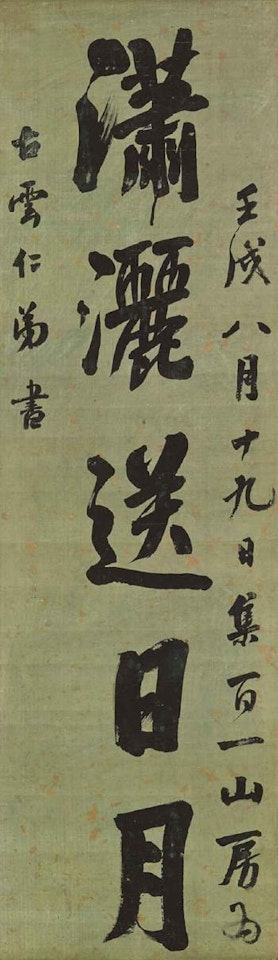 壬戌八月十九日集百一山房為
瀟灑送日月
古雲仁弟書